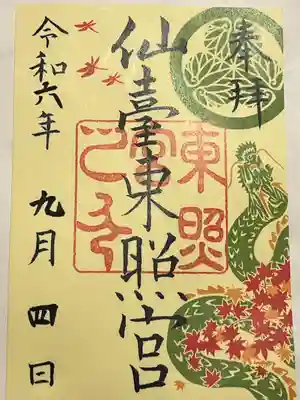 奉拝
仙臺東照宮
東照宮
令和六年 九月 四日